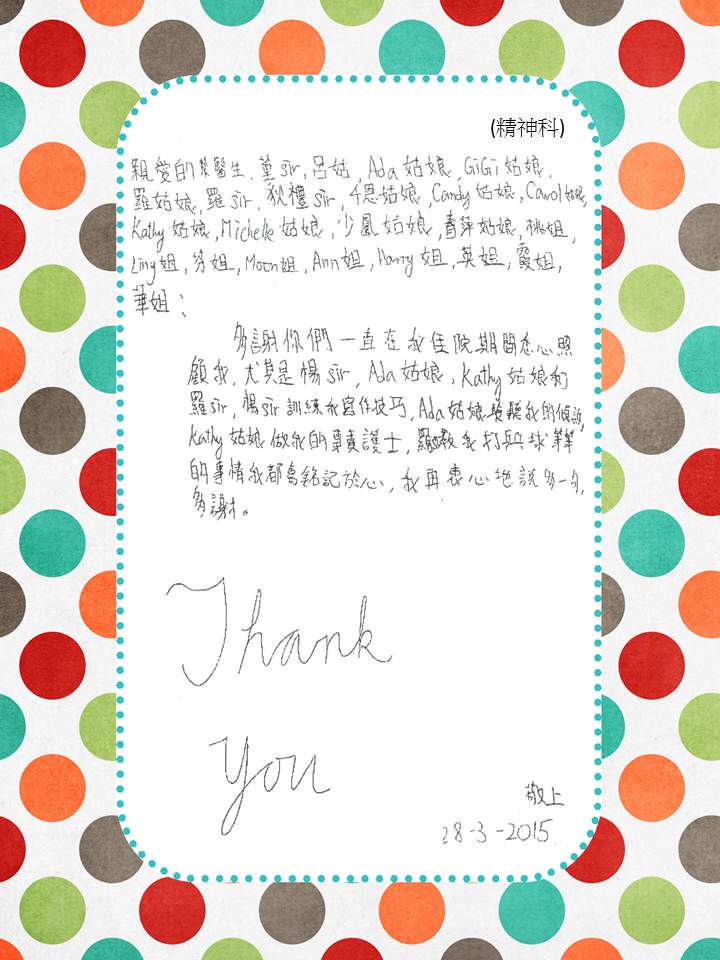 (精神科)
親愛的葉醫生, 董sir, 呂姑, Ada 姑娘, GiGi 姑娘,
羅姑娘, 羅sir, 秋禮sir, 千恩姑娘, Candy 姑娘, Carol 姑娘,
Kathy 姑娘, Michelle 姑娘, 少鳳姑娘, 青萍姑娘, 桃姐,
Ling姐, 芬姐, Moon姐, Ann姐, Harry 姐, 英姐, 霞姐,
華姐:
多謝你們一直在我住院期間悉心照
顧我, 尤其是楊sir, Ada 姑娘, Kathy 姑娘和
羅sir, 楊sir 訓練我寫作技巧, Ada 姑娘聆聽我的傾訴,
Kathy 姑娘做我的專責護士, 教我打乒乓球等等
的事情我都會銘記於心, 我再衷心地說多一句,
多謝。
Thank
You
敬上
28-3-2015